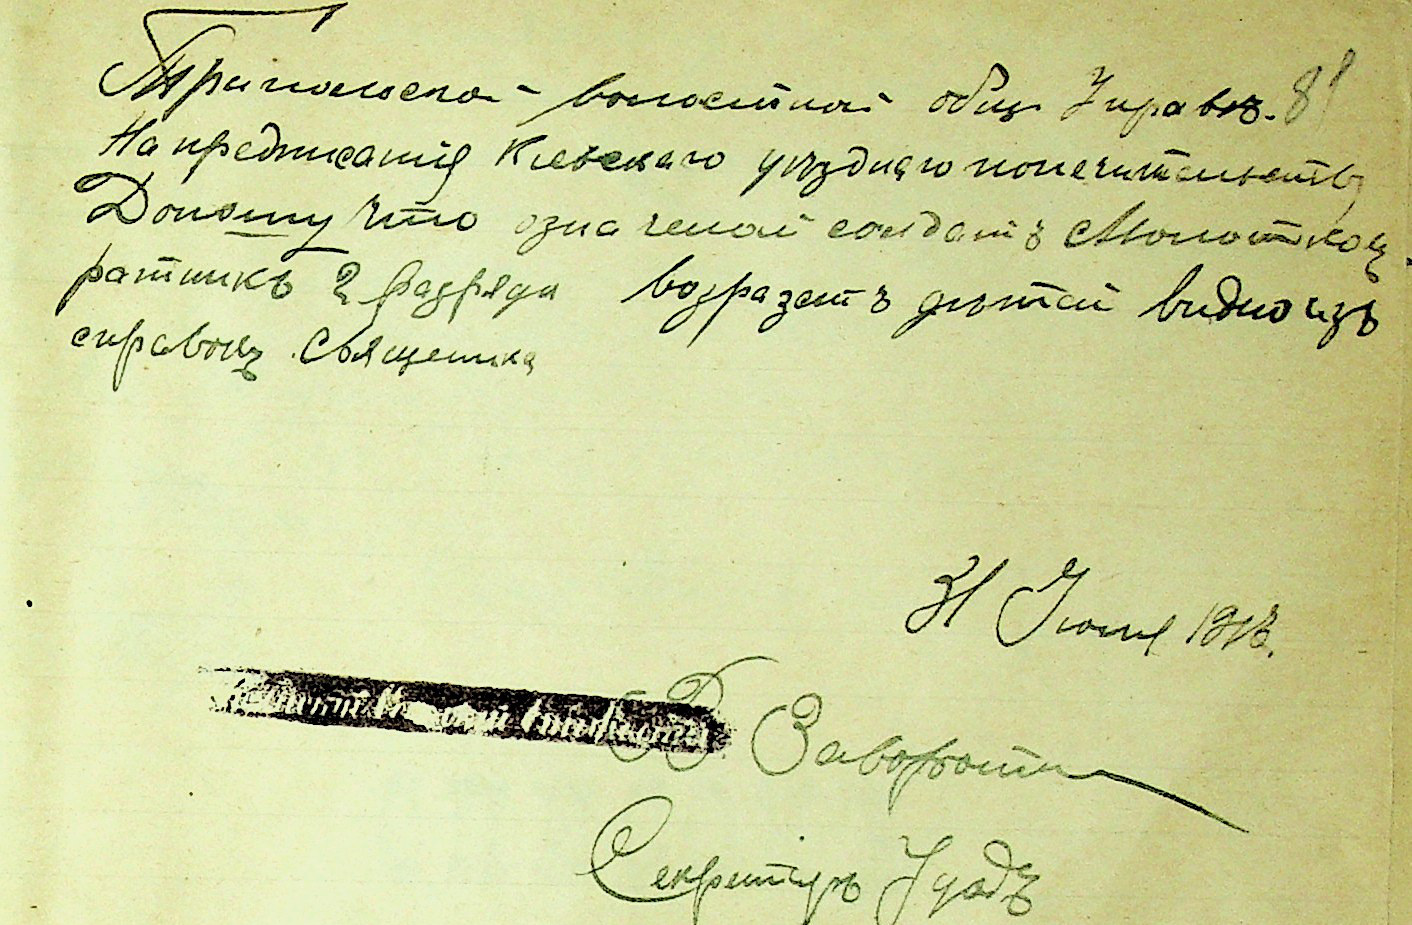 Трипольской волостной общ. Управѣ. 81
На предписания Киевскаго уѣзднаго попечительства
Доношу что означеной солдатъ Молоткоц
ратникъ 2 разряда возразетъ дѣтей видно изъ
справки Священика
31 Июля 1918.
Заворотн
Секретаръ